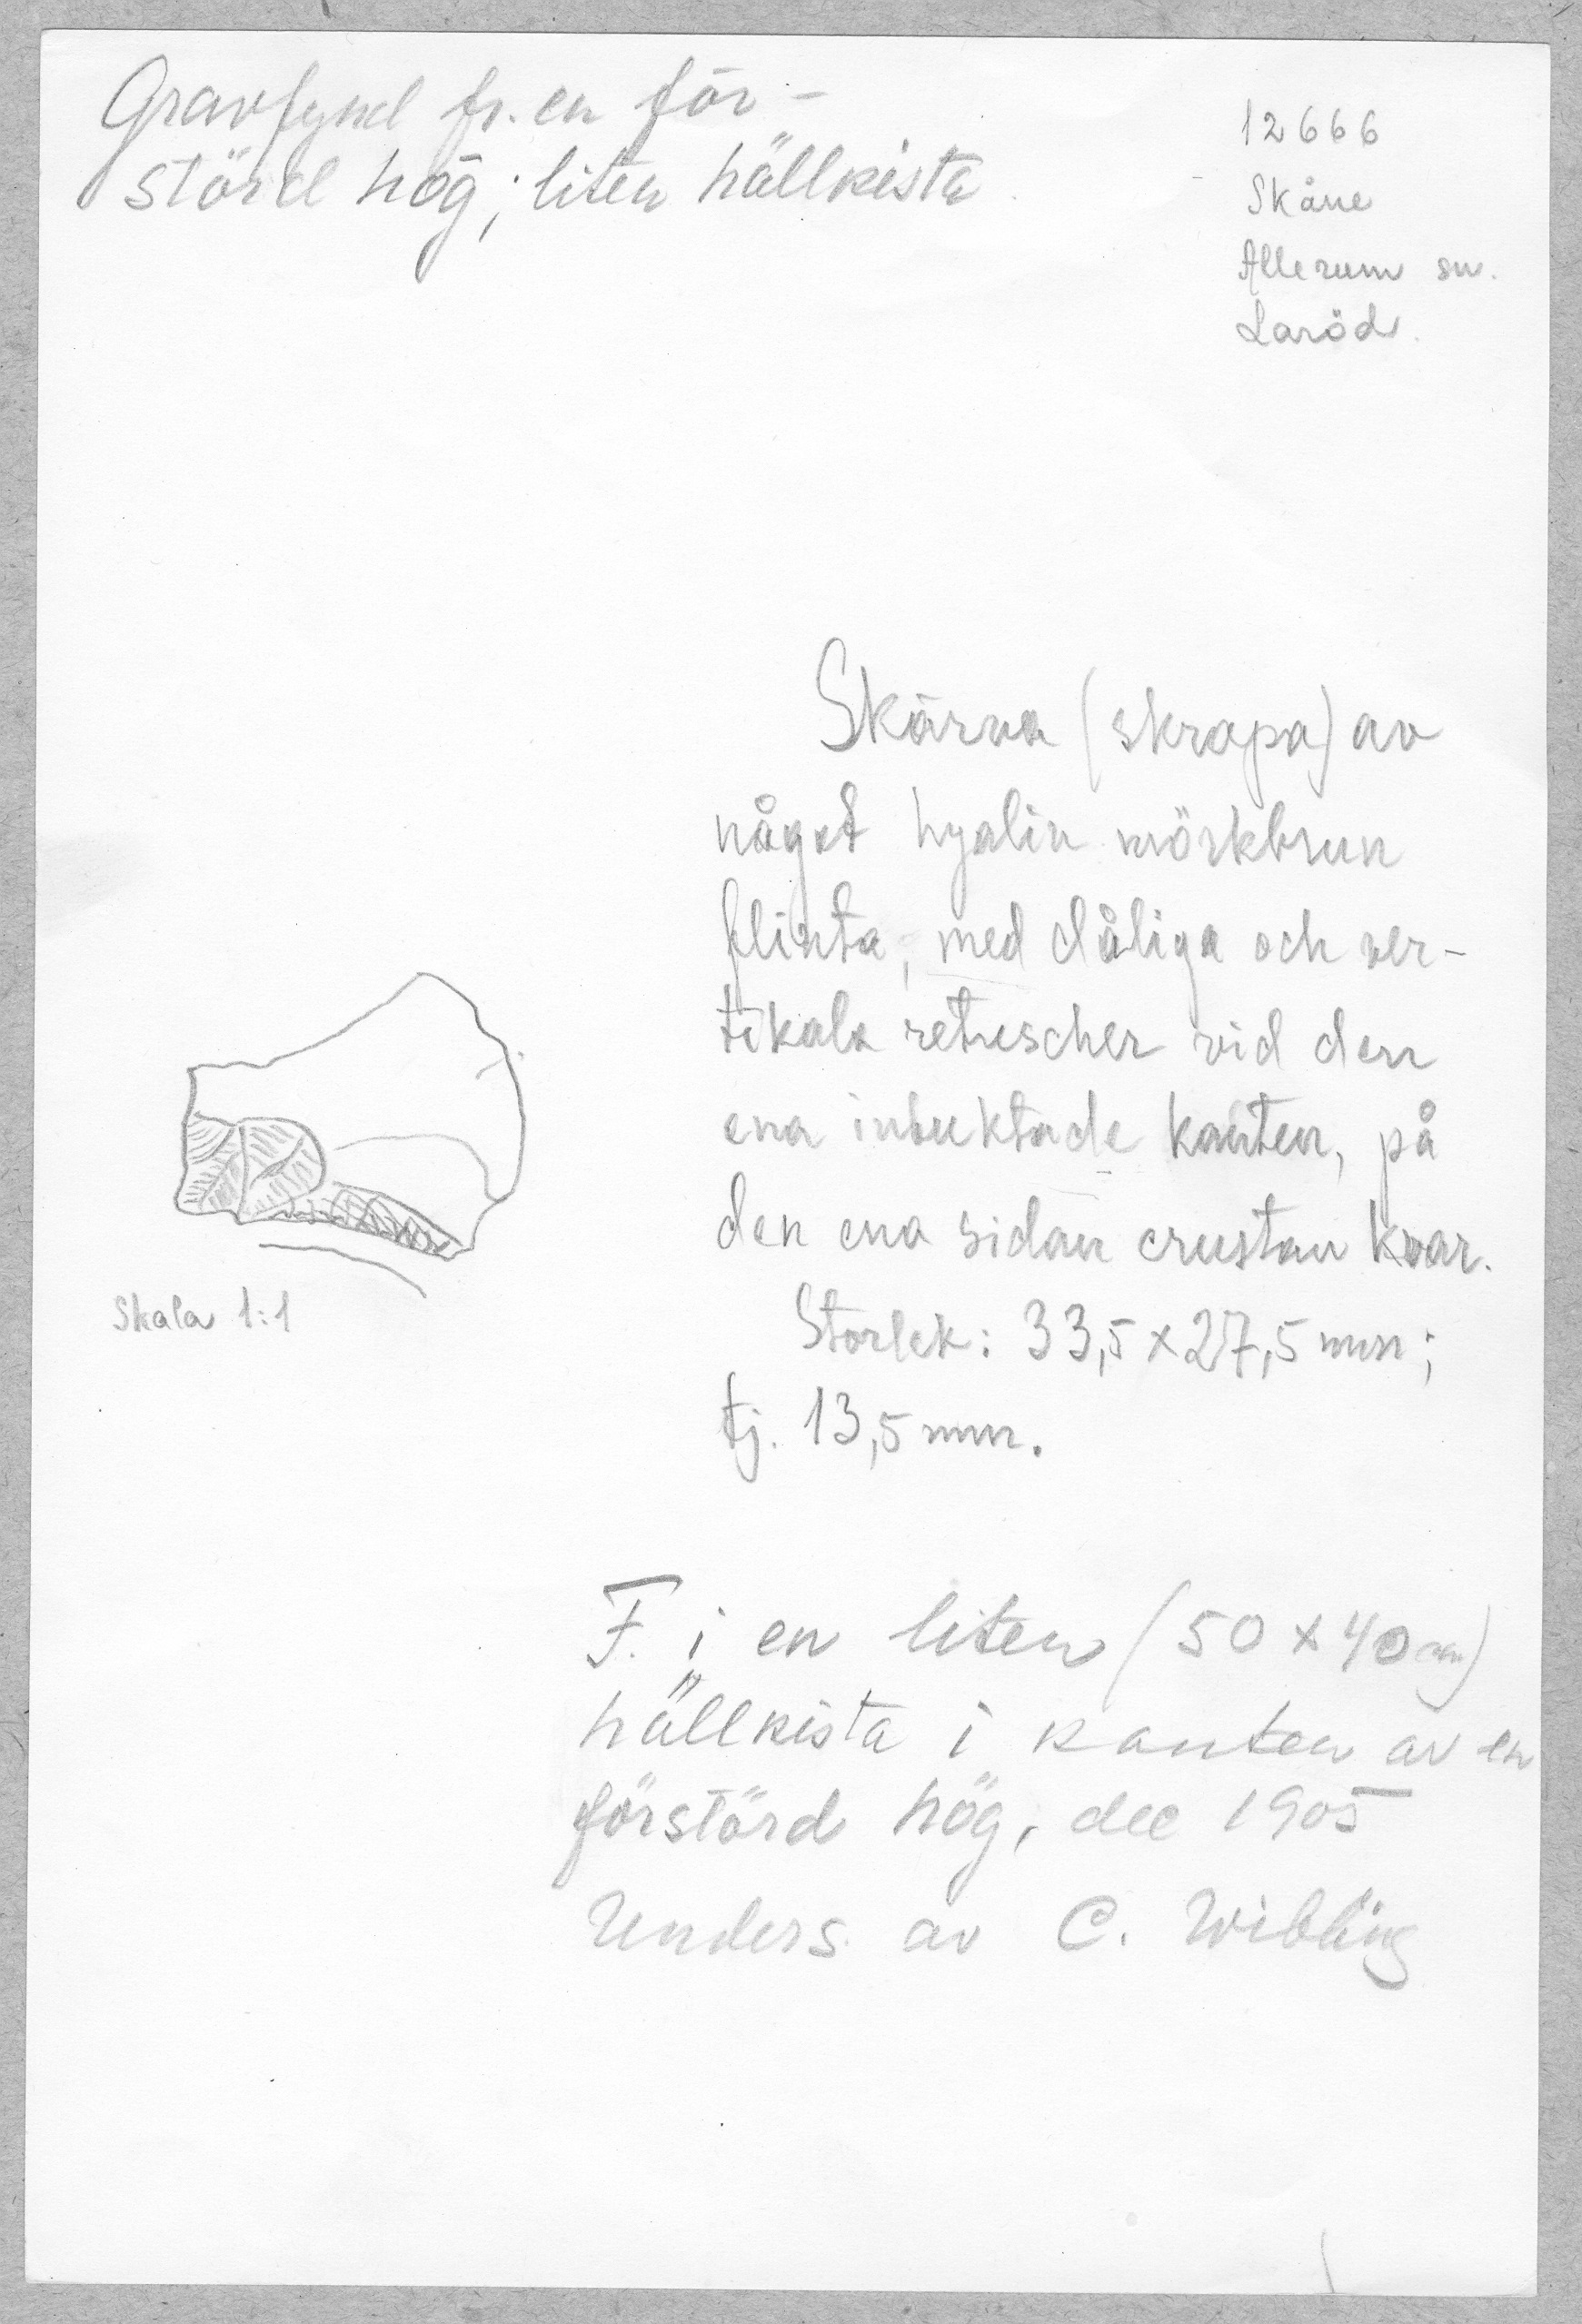 Gravfynd fr. en för-
störd hög; liten hällkista
12666
Skåne
Allerum sn.
Laröd.
Skärva (skrapa) av
något hyalin mörkbrun
flinta, med dåliga och ver-
tikala retuscher vid den
ena inbuktade kanten, på
den ena sidan crustan kvar.
Storlek: 33,5 x 27,5 mm;
tj. 13,5 mm.
Skala 1:1
F. i en liten (50 x 40 cm)
hällkista i kanten av en
förstörd hög, dec 1905
Unders. av C. Wibling